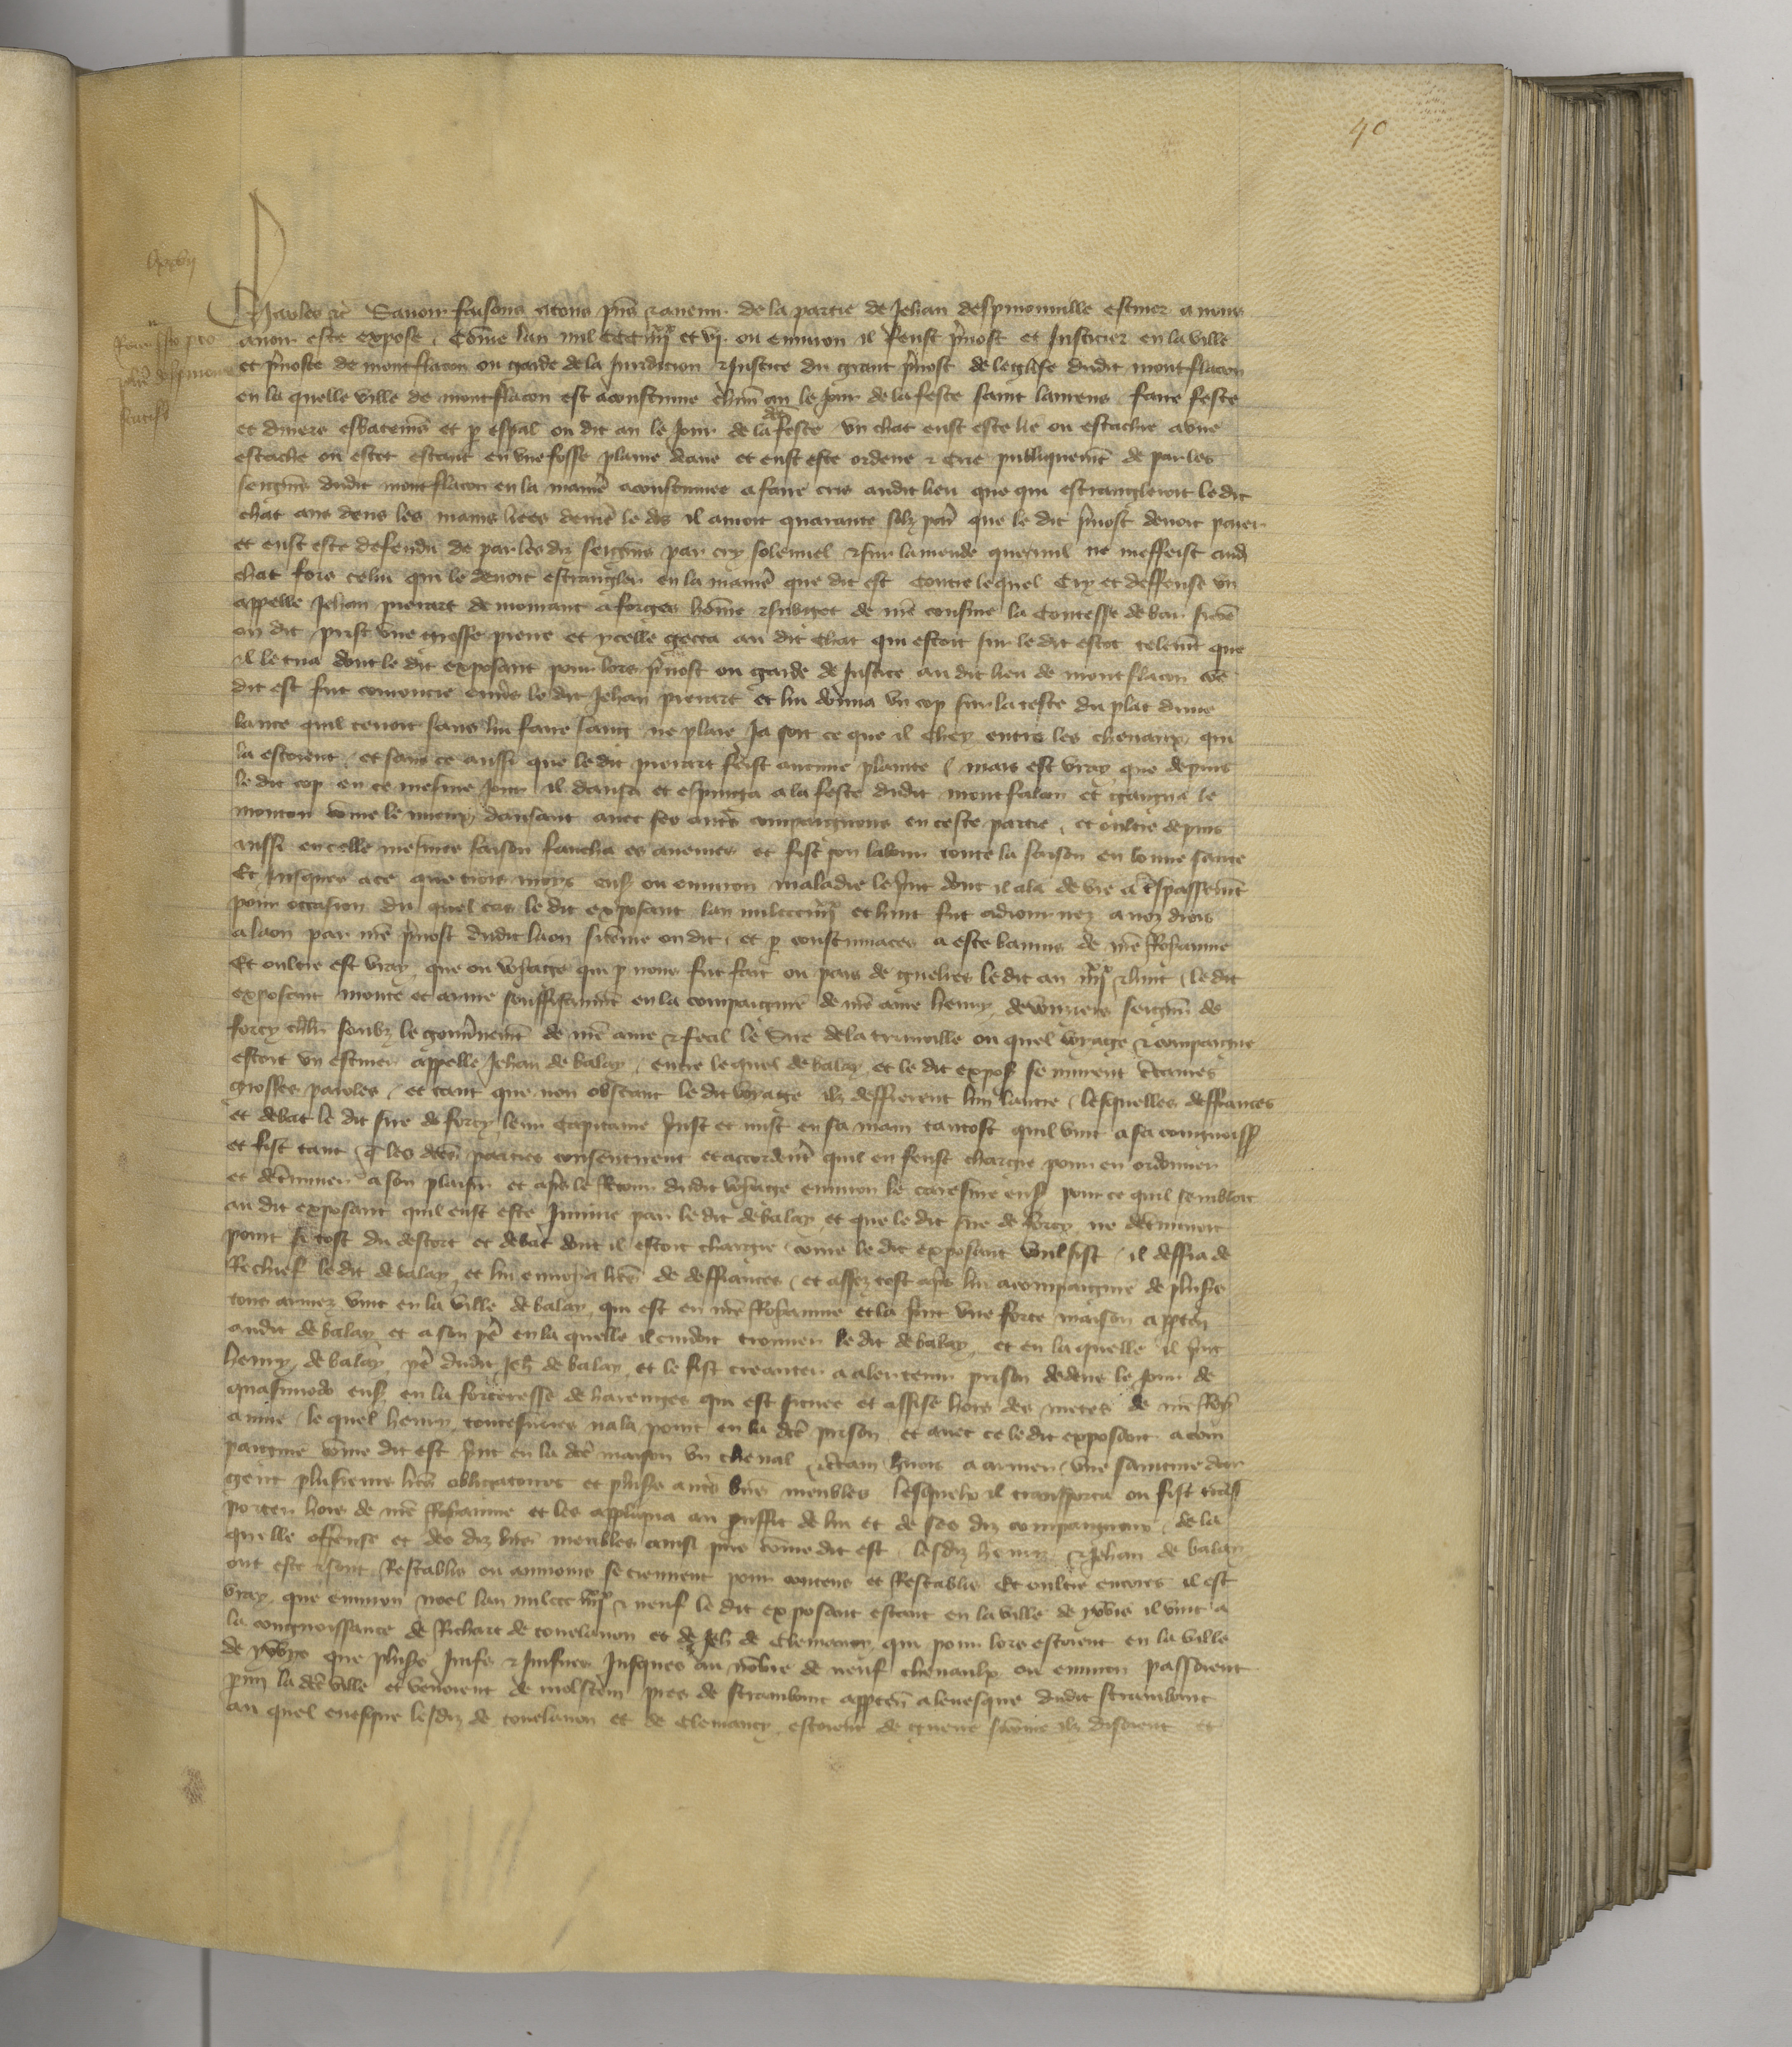 40
lxxvij
Remissio pro
Joh̅e despinonville
scutif.
Charles etc̃ Savoir faisons a tous p̃ns et avenir de la partie de Jehan despinonville escuier a nous
avoir este expose, Com̅e lan mil CCC iiij xx et vj. ou environ il feust p̃vost et Justicier en la ville
et p̃voste de montflacon ou garde de la Juridicion et Justice du grant p̃vost de leglise dudit montflacon
en la quelle ville de montflacon est acoustume ch̃un an le Jour de la feste saint laurens faire feste
et divers esbatem̃s et p espal̃ ou dit an le Jour de la dc̃e feste un chat eust este lie ou estachie a une
estache ou estot estant en une fosse plaine deaue et eust este ordene et crie publiquem̃t de par les
seign̄s dudit montflacon en la manie͂ acoustumee a faire cris audit lieu que qui estrangleroit le dit
chat aus dens les mains liees derrie͂ le dos il auroit quarante solz par̃ que le dit p̃vost devoit paier
et eust este defendu de par les diz seign̄s par cry solennel et sur lamende que nul ne meffeist aud̃
chat fors celui qui le devoit estrangler en la manie͂ que dit est Contre lequel Cry et deffense un
appelle Jehan pierart demourant a forges hom̅e et subget de nr̃e cousine la Contesse de bar sicom̅e
on dit prist une grosse pierre et ycelle gecta au dit chat qui estoit sur le dit estot telem̃t que
il le tua dont le dit exposant pour lors p̃vost ou garde de Justice au dit lieu de montflacon com̅e
dit est fut couroucie envers le dit Jehan pierart et lui donna un cop sur la teste du plat dune
lance quil tenoit sans lui faire sang ne plaie Ja soit ce que il chey entre les chevaux qui
la estoient, et sans ce aussi que le dit pierart feist aucune plainte / mais est vray que depuis
le dit cop en ce mesme Jour il dansa et espinga a la feste dudit montfalcon et gaigna le
mouton com̅e le mieux dansant avec ses autres compaignons en ceste partie, et oultre depuis
aussi en celle mesmes saison faucha es avenes et fist son labour toute la saison en bonne sante
Et Jusques a ce que trois moys ens̃ ou environ maladie le p̃int dont il ala de vie a t̃spassem̃t
pour occasion du quel cas le dit exposant lan mil ccc iiij xx et huit fut adjournez a noz drois
a laon par nr̃e p̃vost dudit laon sicom̅e on dit, et p coustumaces a este bannis de nr̃e Royaume
Et oultre est vray que ou voyage qui p nous fut fait ou pais de guelres le dit an iiij xx et huit, le dit
exposant monte et arme souffisanm̃t en la compaignie de nr̃e ame henry seign̄ de
forcy ch̃lr soubz le gouv̄nem̃t de nr̃e ame et feal le Sire de la trimoille ou quel voyage et compaignie
estoit un escuier appelle Jehan de balay, entre lequel de balay et le dit expos̃ se murent c̃taines
grosses paroles, et tant que non obstant le dit voyage ilz deffierent lun lautre, lesquelles deffiances
et debat le dit sire de forcy leur Capitaine prist et mist en sa main tantost quil vint a sa congnoiss̃
et fist tant q̃ les dc̃es parties consentirent et accorderẽt quil en feust chargie pour en ordonner
et det̃miner a son plaisir et ap̃s le Retour dudit voyage environ le caresme ens̃ pour ce quil sembloit
au dit exposant quil eust este Injurie par le dit de balay, et que le dit sire de forcy ne det̃minoit
point si tost du descort et debat dont il estoit chargie com̅e le dit exposant voulsist, il deffia de
Rechief le dit de balay, et lui envoya lr̃es de deffiances, et assez tost ap̃s lui acompaignie de plus̃rs
tous armez vint en la ville de balay, qui est en nr̃e Royaume et la p̃int une forte maison apprten̄
audit de balay et a son pe͂ en la quelle il cuidoit trouver le dit de balay, et en la quelle il p̃int
henry de balay pe͂ dudit Jeh̃ de balay, et le fist creanter a aler tenir prison dedens le Jour de
quasimodo ens̃ en la forteresse de harenges qui est situee et assise hors des metes de nr̃e Roy
aume / le quel henry toutesvoies nala point en la dc̃e prison, et avec ce le dit exposant acom
paignie com̅e dit est p̃int en la dc̃e maison un cheval, c̃tain hnois a armer, une sainture dar
gent plusieurs lr̃es obligatoires et plus̃rs autres biens meubles lesquelx il transporta ou fist t̃ns
porter hors de nr̃e Royaume et les appliqua au prouffit de lui et de ses diz compaignons, de la
quelle offense et des diz biens meubles ainsi prins com̅e dit est, lesdiz henry et Jehan de balay
ont este et sont Restablis ou aumoins se tiennent pour contens et Restablis Et oultre encores il est
vray que environ noel lan mil ccc iiij xx et neuf le dit exposant estant en la ville de yvoire il vint a
la congnoissance de Richart de tonelavon et de Jeh̃ de Clemancy qui pour lors estoient en la ville
de yvoyre que plus̃rs Juifs et Juifves Jusques au nombre de neuf chevaulx ou environ passoient
parmi la dc̃e ville et venoient de molshem pres de strasbourc apprten̄ a levesque dudit strasbourc
au quel evesque lesdiz de tonelavon et de Clemancy estoient de guerre sicom̅e ilz disoient et